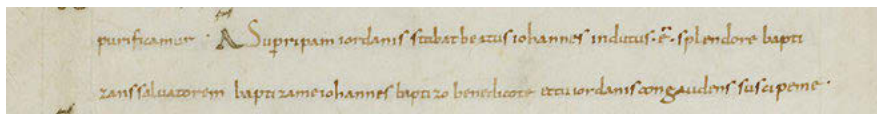 purificamur · A Sup ripam iordanis stabat beatus iohannes indutus · ē · splendore bapti
zans salvatorem baptiza me iohannes baptizo benedico te et tu iordanis congaudens suscipe me ·